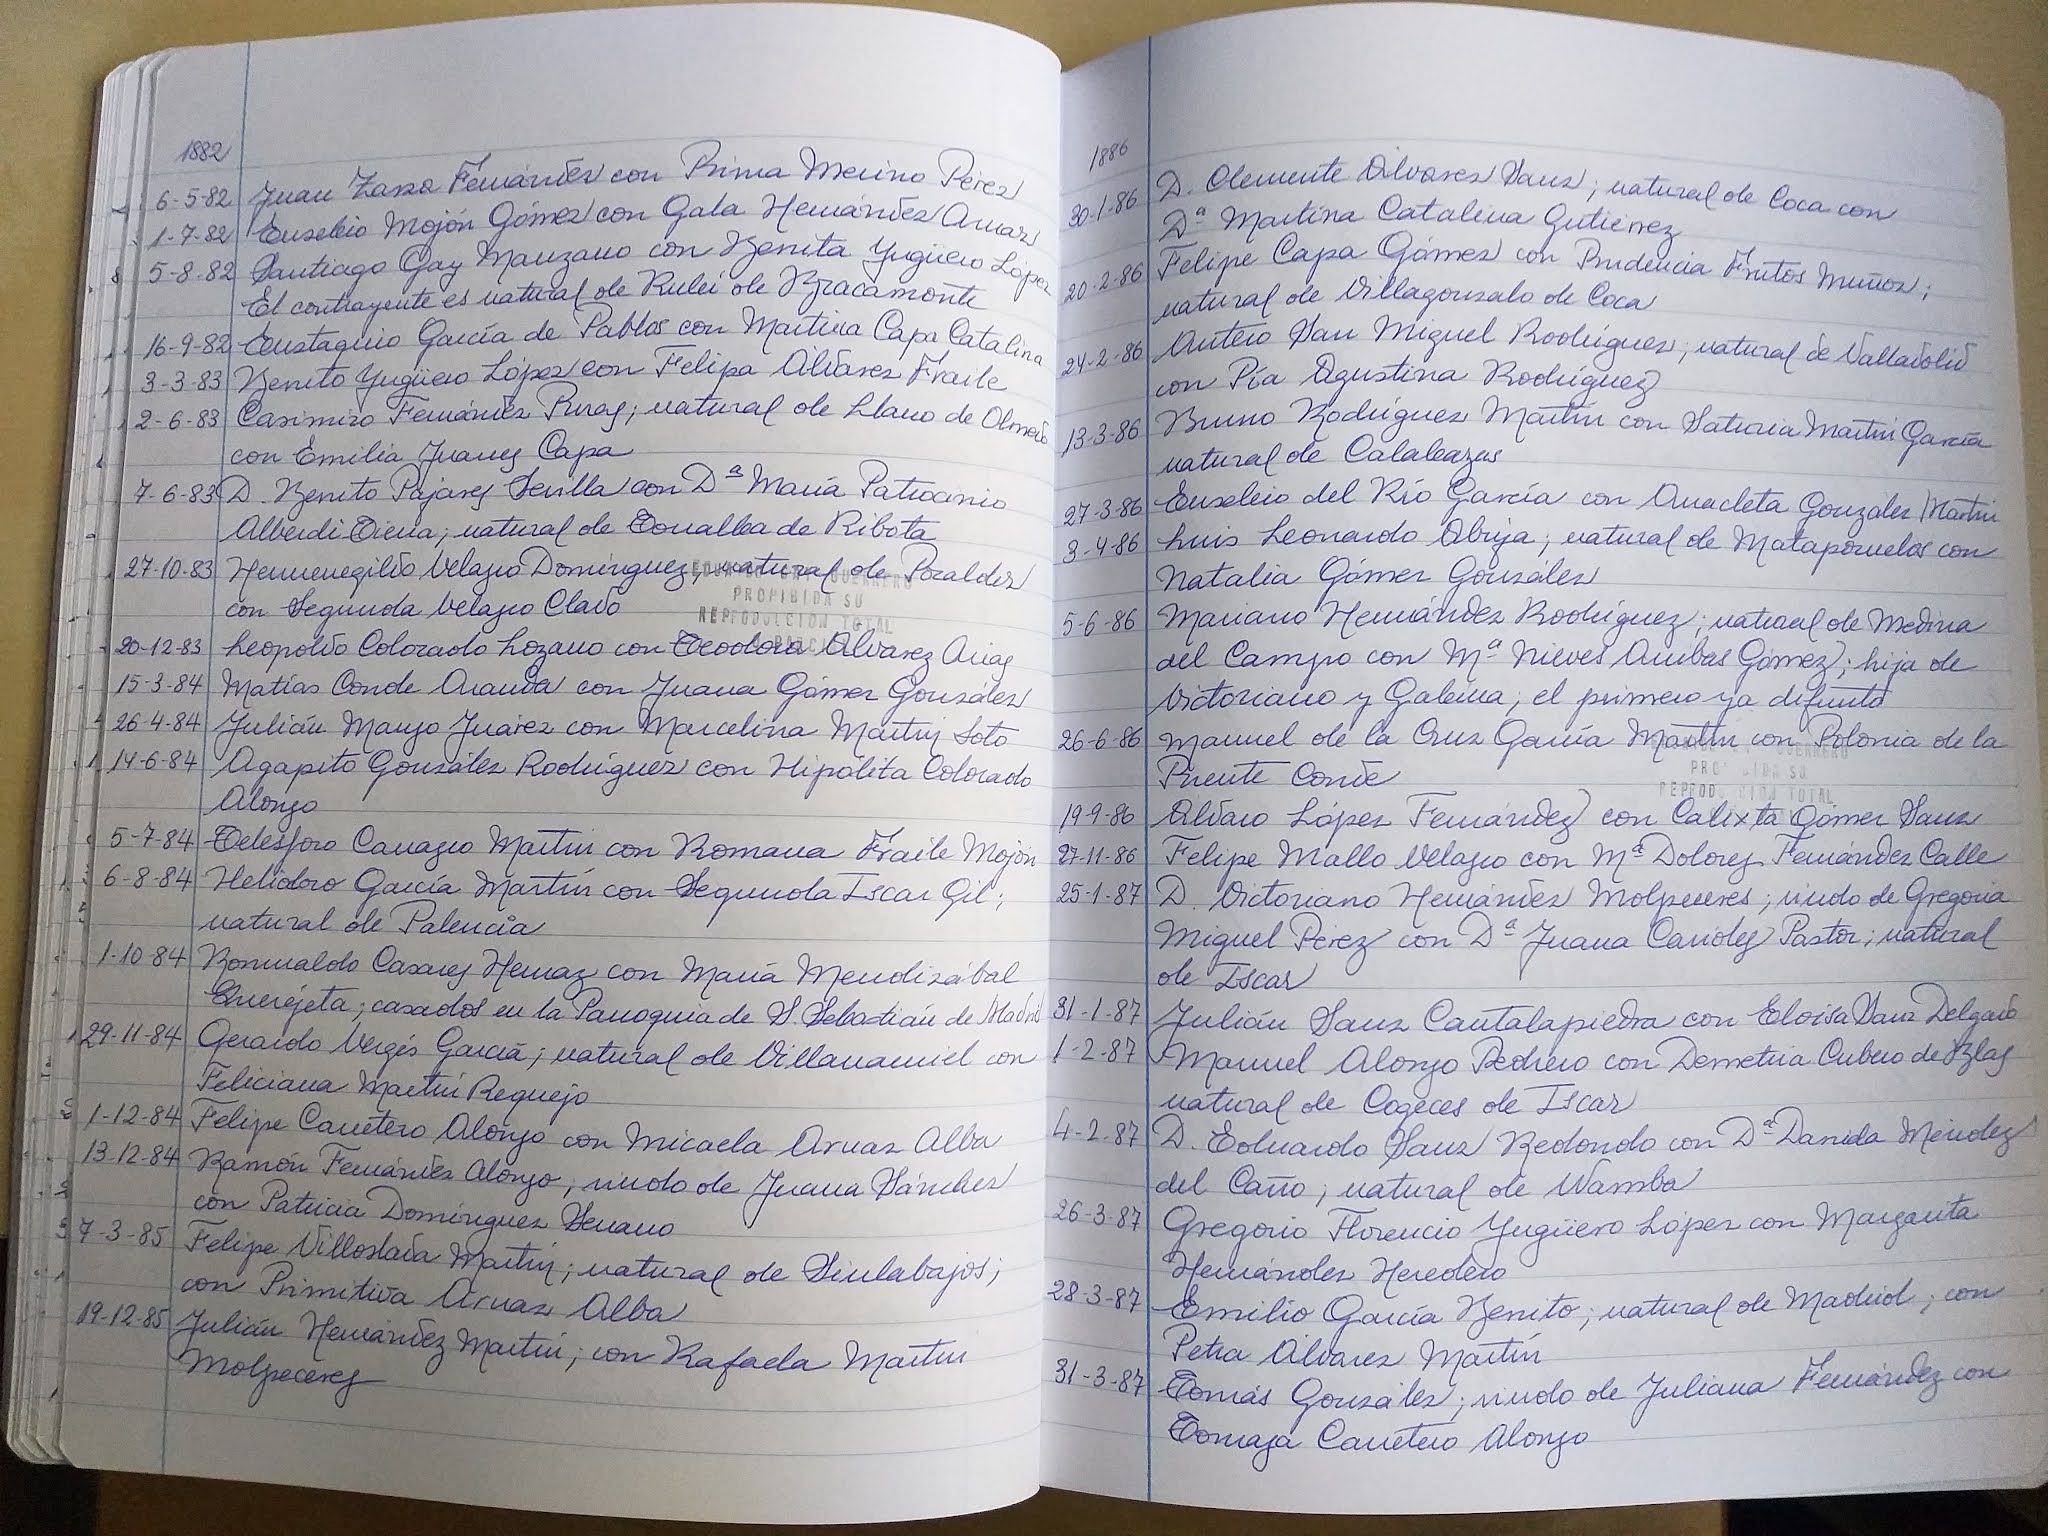 1882
6-5-82 Juan Zarza Fernández con Prima Merino Pérez
1-7-82 Eusebio Mojón Gómez con Gala Hernández Arnaz
5-8-82 Santiago Gay Manzano con Benita Yugüero López
El contrayente es natural de Rubí de Bracamonte
16-9-82 Eustaquio García de Pablos con Martina Capa Catalina
3-3-83 Benito Yugüero López con Felipa Álvarez Fraile
2-6-83 Casimiro Fernández Puras; natural de Llano de Olmedo
con Emilia Juanes Capa
7-6-83 D. Benito Pajares Sevilla con Dª María Patrocinio
Alberdi; natural de Torralba de Ribota
27-10-83 Hermenegildo Velasco Domínguez; natural de Pozaldez
con Segunda Velasco Clavo
20-12-83 Leopoldo Colorado Lozano con Teodora Álvarez Arias
15-3-84 Matías Conde Aranda con Juana Gómez González
26-4-84 Julián Manso Juárez con Marcelina Martín Soto
14-6-84 Agapito González Rodríguez con Hipólita Colorado
Alonso
5-7-84 Telesforo Carrasco Martín con Romana Fraile Mojón
6-8-84 Heliodoro García Martín con Segunda Iscar Gil;
natural de Palencia
1-10-84 Romualdo Casares Herraz con María Mendizábal
Querejeta; casados en la Parroquia de S. Sebastián de Madrid
29-11-84 Gerardo Vergés García; natural de Villarramiel con
Feliciana Martín Requejo
1-12-84 Felipe Carretero Alonso con Micaela Arnaz Alba
13-12-84 Ramón Fernández Alonso, viudo de Juana Sánchez
con Patricia Domínguez Serrano
7-3-85 Felipe Villoslada Martín; natural de Sinlabajos;
con Primitiva Arnaz Alba
19-12-85 Julián Hernández Martín; con Rafaela Martín
Molpeceres
PROHIBIDA SU
REPRODUCCION TOTAL
1886
30-1-86 D. Clemente Álvarez Sanz; natural de Coca con
Dª Martina Catalina Gutiérrez
20-2-86 Felipe Capa Gómez con Prudencia Frutos Muñoz;
natural de Villagonzalo de Coca
24-2-86 Antero San Miguel Rodríguez; natural de Valladolid
con Pía Agustina Rodríguez
13-3-86 Bruno Rodríguez Martín con Saturia Martín García
natural de Calabazas
27-3-86 Eusebio del Río García con Anacleta González Martín
3-4-86 Luis Leonardo Abuja; natural de Matapozuelos con
Natalia Gómez González
5-6-86 Mariano Hernández Rodríguez; natural de Medina
del Campo con Mª Nieves Arribas Gómez; hija de
Victoriano y Gabina; el primero ya difunto
26-6-86 Manuel de la Cruz García Martín con Polonia de la
Puente Conde
19-9-86 Álvaro López Fernández con Calixta Gómez Sanz
27-11-86 Felipe Mallo Velasco con Mª Dolores Fernández Calle
25-1-87 D. Victoriano Hernández Molpeceres; viudo de Gregoria
Miguel Pérez con Dª Juana Pastor; natural
de Iscar
31-1-87 Julián Sanz Cantalapiedra con Eloísa Sanz Delgado
1-2-87 Manuel Alonso Pedrero con Demetria Cubero de Blas
natural de Cogeces de Iscar
4-2-87 D. Eduardo Sanz Redondo con Dª Méndez
del Caño; natural de Wamba
26-3-87 Gregorio Florencio Yugüero López con Margarita
Hernández Heredero
28-3-87 Emilio García Benito; natural de Madrid; con
Petra Álvarez Martín
31-3-87 Tomás González; viudo de Juliana Fernández con
Tomasa Carretero Alonso
PROHIBIDA SU
REPRODUCCION TOTAL